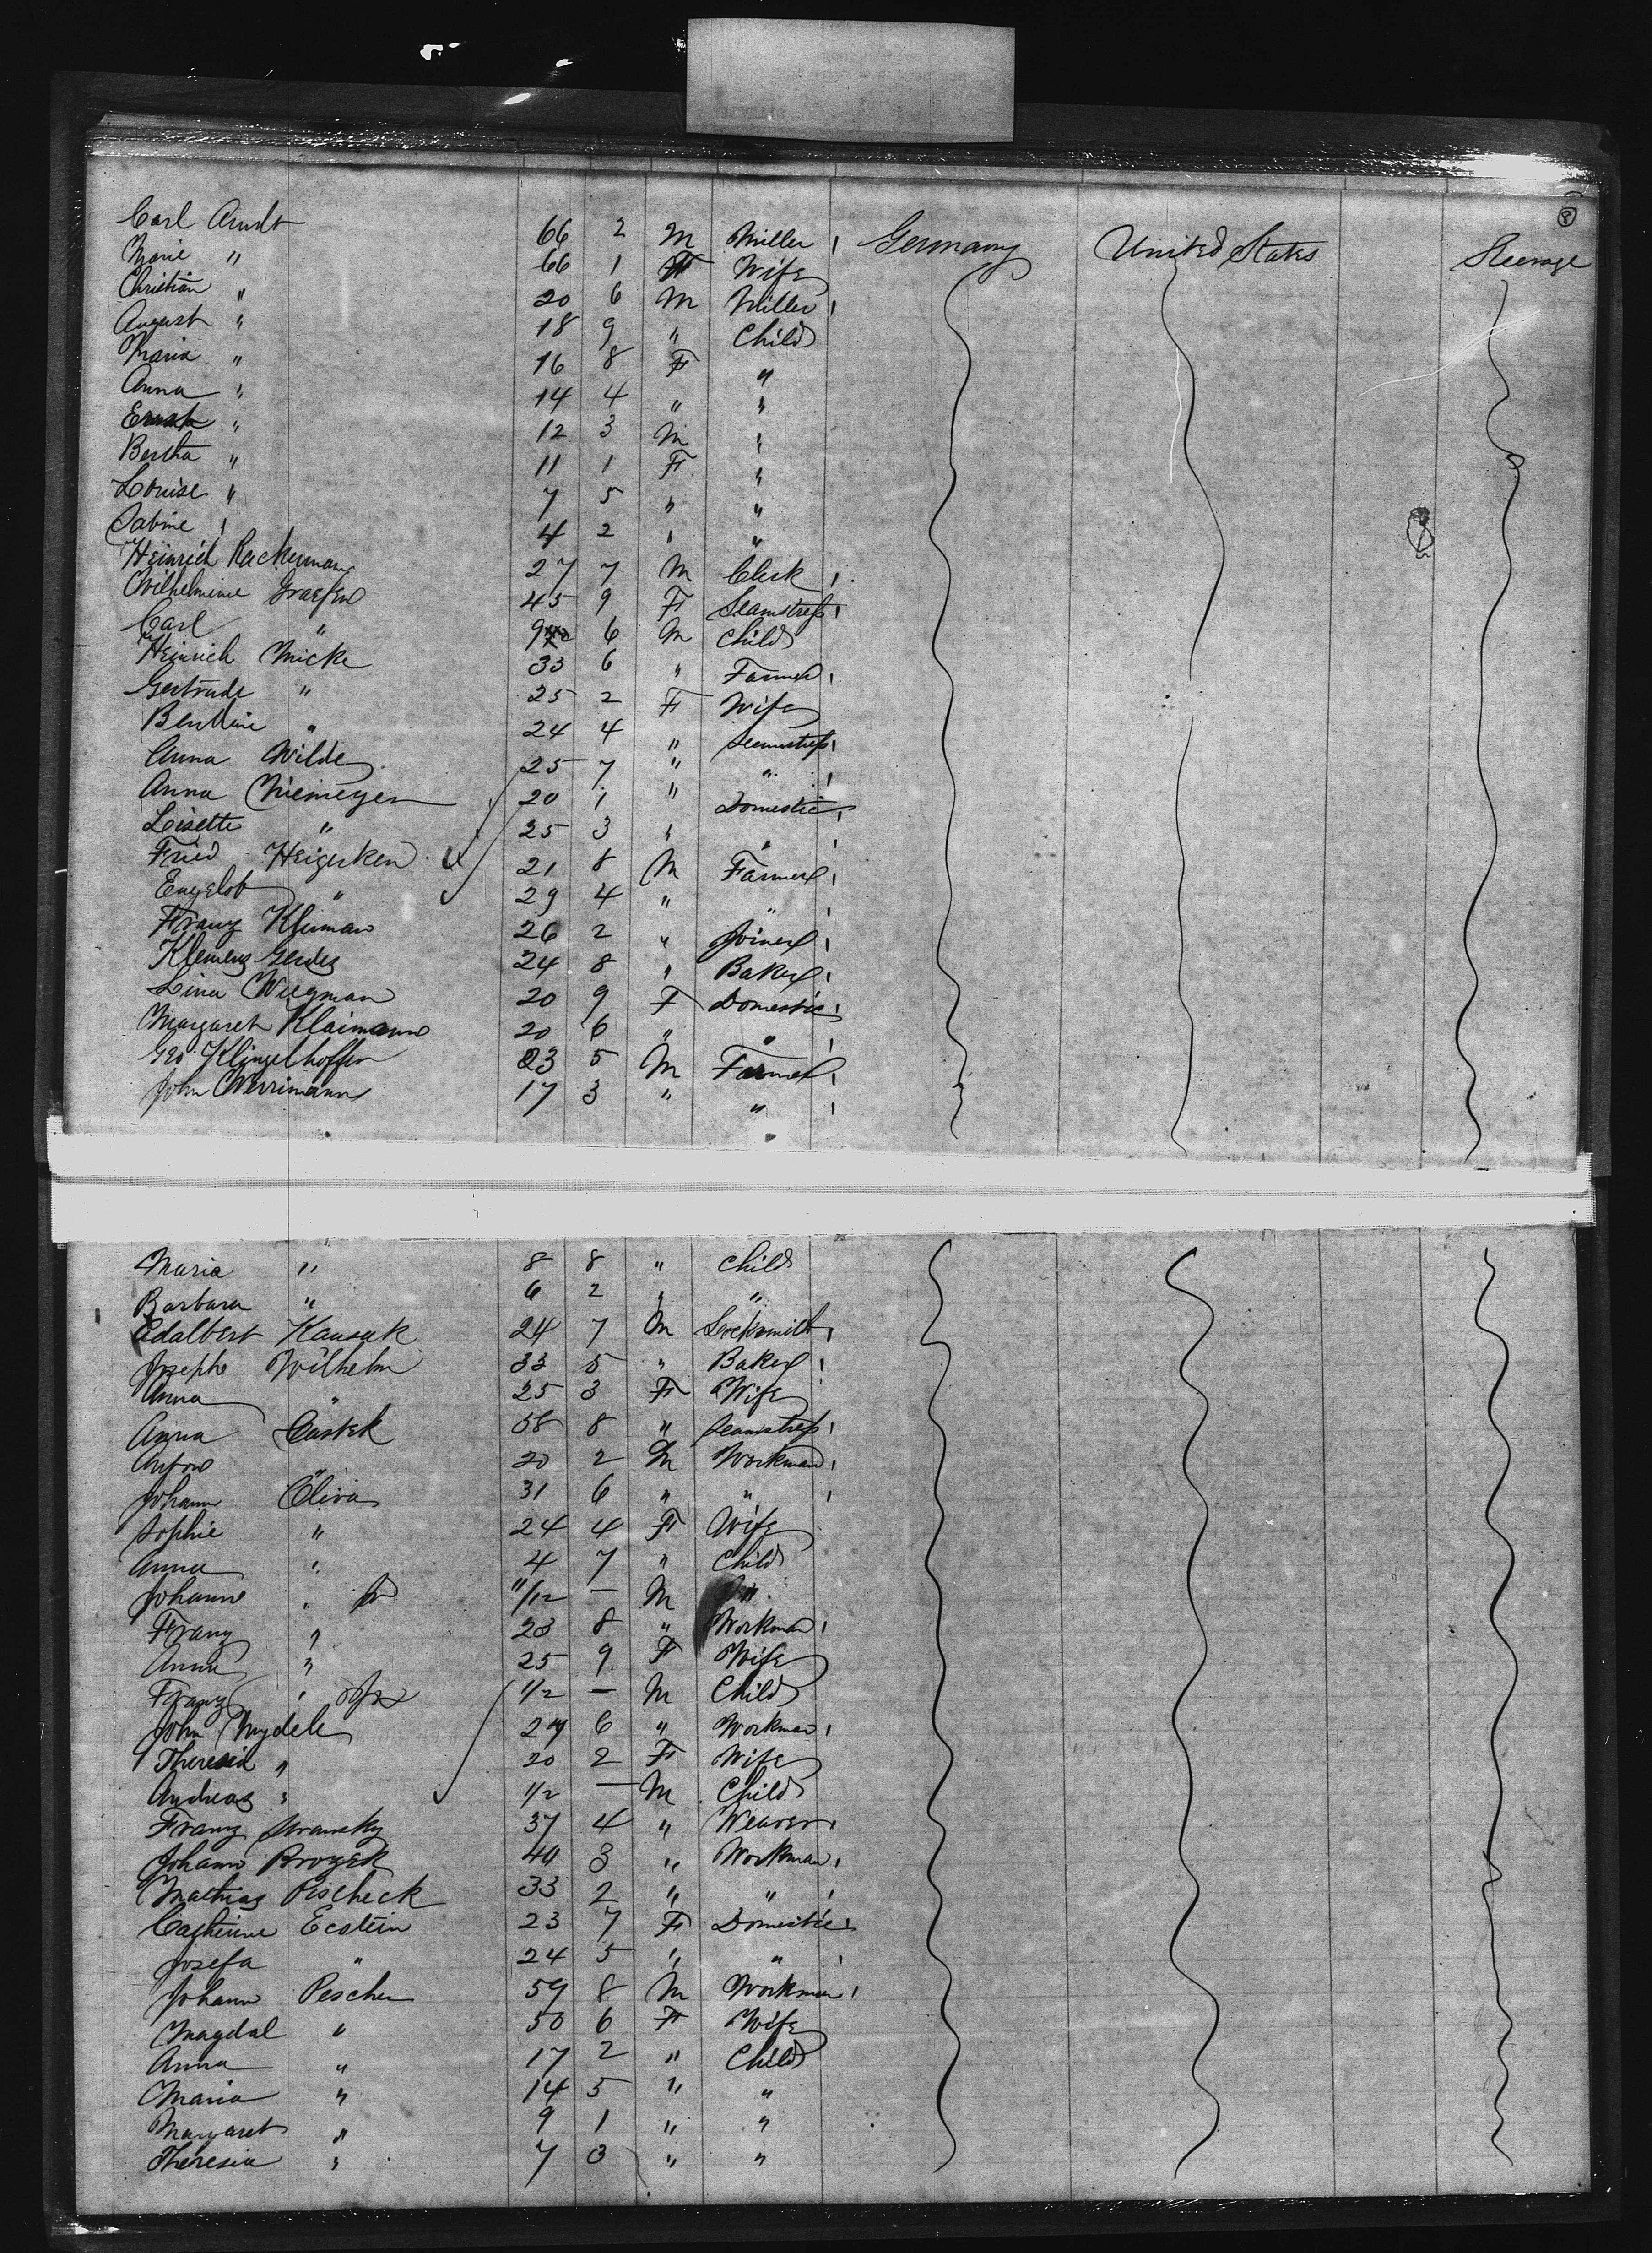 8
Carl Arndt 66 2 M Miller Germany United States Steerage
Marie " 66 1 F Wife
Christian " 20 6 M Miller
August " 18 9 " Child
Maria " 16 8 F "
Anna " 14 4 " "
Ernst " 12 3 M "
Bertha " 11 1 F "
Louise " 7 5 " "
Sabine " 4 2 " "
Heinrich Rackermann 27 7 M Clerk
Wilhelmine Graefen 45 9 F Seamstress
Carl " 9 6 M Child
Heinrich Micke 33 6 " Farmer
Gertrude " 25 2 F Wife
" 24 4 " Seamstress
Anna Wilde 25 7 " "
Anna Niemeyer 20 1 " Domestic
Lisette " 25 3 " "
Fried Heigerken 21 8 M Farmer
Engelb " 29 4 " "
Franz Kleiman 26 2 " Joiner
Klemens Gerdes 24 8 " Baker
Lina Wegman 20 9 F Domestic
Margaret Klaimann 20 6 " "
Geo Klingelhoffer 23 5 M Farmer
John Werrimann 17 3 " "
Maria " 8 8 " Child
Barbara " 6 2 " "
Adalbert 24 7 M Locksmith
Josephe Wilhelm 33 5 " Baker
Anna " 25 3 F Wife
Anna Castek 58 8 " Seamstress
Anton " 20 2 M Workman
Johann Oliva 31 6 " "
Sophie " 24 4 F Wife
Anna " 4 7 " Child
Johann " Jr 11/12 — M "
Franz " 23 8 " Workman
Anna " 25 9 F Wife
Franz " 1/2 — M Child
John 27 6 " Workman
Theresia " 20 2 F Wife
Andreas " 1/2 — M Child
Franz Stransky 37 4 " Weaver
Johann Brozek 40 3 " Workman
Mathias Pischeck 33 2 " "
Catherine Ecstein 23 7 F Domestic
Josefa " 24 5 " "
Johann Pescher 59 8 M Workman
Magdal " 50 6 F Wife
Anna " 17 2 " Child
Maria " 14 5 " "
Margaret " 9 1 " "
Theresia " 7 3 " "